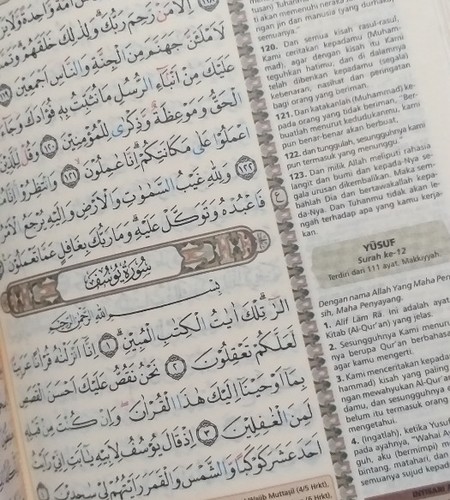 إِلَّا مَن رَّحِمَ رَبُّكَ وَلِذَٰلِكَ خَلَقَهُمْ وَتَمَّتْ
لَأَمْلَأَنَّ جَهَنَّمَ مِنَ الْجِنَّةِ وَالنَّاسِ أَجْمَعِينَ ١١٩
عَلَيْكَ مِنْ أَنبَاءِ الرُّسُلِ مَا نُثَبِّتُ بِهِ فُؤَادَكَ وَجَاءَ
الْحَقُّ وَمَوْعِظَةٌ وَذِكْرَىٰ لِلْمُؤْمِنِينَ ١٢٠ وَقُل لِّلَّذِينَ
اعْمَلُوا عَلَىٰ مَكَانَتِكُمْ إِنَّا عَامِلُونَ ١٢١ وَانتَظِرُوا إِنَّا
١٢٢ وَلِلَّهِ غَيْبُ السَّمَاوَاتِ وَالْأَرْضِ وَإِلَيْهِ يُرْجَعُ الْأَمْرُ
فَاعْبُدْهُ وَتَوَكَّلْ عَلَيْهِ وَمَا رَبُّكَ بِغَافِلٍ عَمَّا تَعْمَلُونَ
سُورَةُ يُوسُفَ
بِسْمِ اللَّهِ الرَّحْمَٰنِ الرَّحِيمِ
الر تِلْكَ آيَاتُ الْكِتَابِ الْمُبِينِ ١ إِنَّا أَنزَلْنَاهُ قُرْآنًا عَرَبِيًّا
لَّعَلَّكُمْ تَعْقِلُونَ ٢ نَحْنُ نَقُصُّ عَلَيْكَ أَحْسَنَ الْقَصَصِ
بِمَا أَوْحَيْنَا إِلَيْكَ هَٰذَا الْقُرْآنَ وَإِن كُنتَ مِن قَبْلِهِ
لَمِنَ الْغَافِلِينَ ٣ إِذْ قَالَ يُوسُفُ لِأَبِيهِ يَا أَبَتِ إِنِّي رَأَيْتُ
أَحَدَ عَشَرَ كَوْكَبًا وَالشَّمْسَ وَالْقَمَرَ رَأَيْتُهُمْ لِي سَاجِدِينَ
Wajib Muttaşil (4/5 Hrkt),
ti) akan memenuhi neraka
ngan jin dan manusia (yang durhaka)
semuanya."
120. Dan semua kisah rasul-rasul,
Kami ceritakan kepadamu (Muham-
mad), agar dengan kisah itu Kami
teguhkan hatimu; dan di dalamnya
telah diberikan kepadamu (segala)
kebenaran, nasihat dan peringatan
bagi orang yang beriman.
121. Dan katakanlah (Muhammad) ke-
pada orang yang tidak beriman, "Ber-
buatlah menurut kedudukanmu, kami
pun benar-benar akan berbuat,
122. dan tunggulah, sesungguhnya kami
pun termasuk yang menunggu."
123. Dan milik Allah meliputi rahasia
langit dan bumi dan kepada-Nya se-
gala urusan dikembalikan. Maka sem-
bahlah Dia dan bertawakallah kepa-
da-Nya. Dan Tuhanmu tidak akan le-
ngah terhadap apa yang kamu kerja-
kan.
YŪSUF
Surah ke-12
Terdiri dari 111 ayat. Makkiyyah.
Dengan nama Allah Yang Maha Penga-
sih, Maha Penyayang.
1. Alif Lām Rā. Ini adalah ayat-
Kitab (Al-Qur'an) yang jelas.
2. Sesungguhnya Kami menurunkan-
nya berupa Qur'an berbahasa
agar kamu mengerti.
3. Kami menceritakan kepadamu
hammad) kisah yang paling
ngan mewahyukan Al-Qur'an
damu, dan sesungguhnya
belum itu termasuk orang
mengetahui.
4. (Ingatlah), ketika Yusuf
pada ayahnya, "Wahai Ay
guh, aku (bermimpi) me
bintang, matahari, dan
semuanya sujud kepada